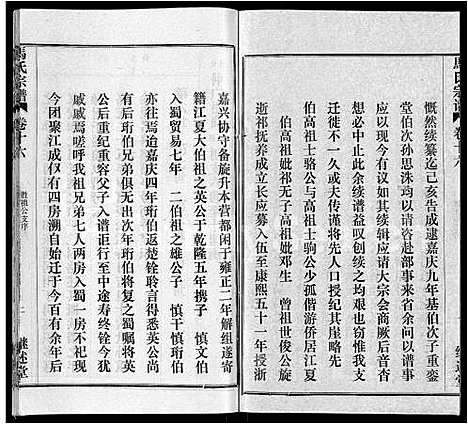 慨然续纂迄己亥告成逮嘉庆九年基伯次子重銮
堂伯次孙思洙均以请咨赴部事回省余谓二
应以现今有如此其续辑应请大宗主商厥后音杳
想必中止此余续谱益叹创续之两艰也夫支繁
迁徙不一久或失传谨将先人口授纪其崖略先
伯高祖士骆公与高祖士驹公少孤偕游侨居江夏
伯高祖妣祁无子高祖妣邓生 曾祖世俊公旋
逝祁抚养成立长应募入伍至康熙五十一年授浙
嘉兴协守备旋升本营都闲于雍正二年解组遂寄
籍江夏大伯祖之英公于乾隆五年携子 慎文伯
入蜀贸易七年 二伯祖之雄公子 慎干慎珩伯
亦往焉追嘉庆四年珩伯旋楚铨聆言得悉英公尚
有后珩伯兄弟俱无出次年珩伯又逝嗣查英
公后重纪重容父子入谱讵行至中途寿终铨今犹
戚戚焉嗟呼我祖兄弟七人两房入蜀一房不祀现
今团聚江成仅有四房溯自始迁于今百有余年后
马氏宗谱
卷十六
胜祖公支序
二
继述堂